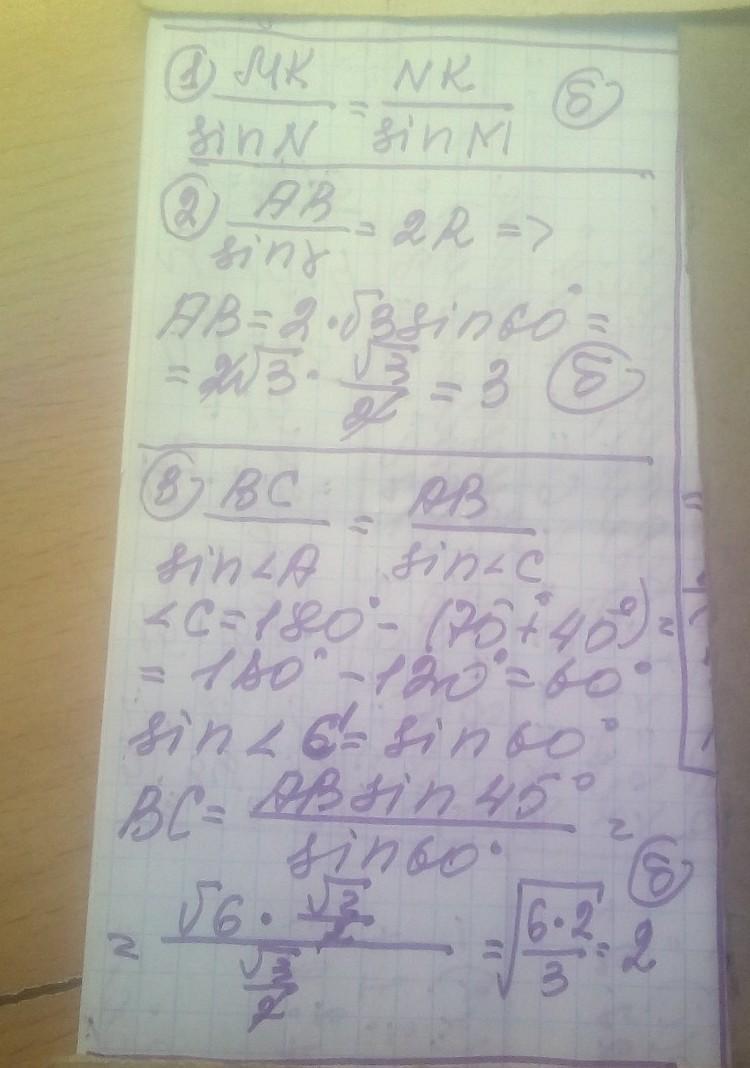 ① MK/sin N = NK/sin M б
② AB/sin γ = 2R =>
AB = 2·√3 sin 60° =
= 2√3 · √3/2 = 3 б
③ BC/sin∠A = AB/sin∠C
∠C = 180° - (75° + 45°) =
= 180° - 120° = 60°
sin∠C = sin 60°
BC = AB sin 45°/sin 60° =
= √6 · √2/2 / √3/2 = √6·2/3 = 2 б